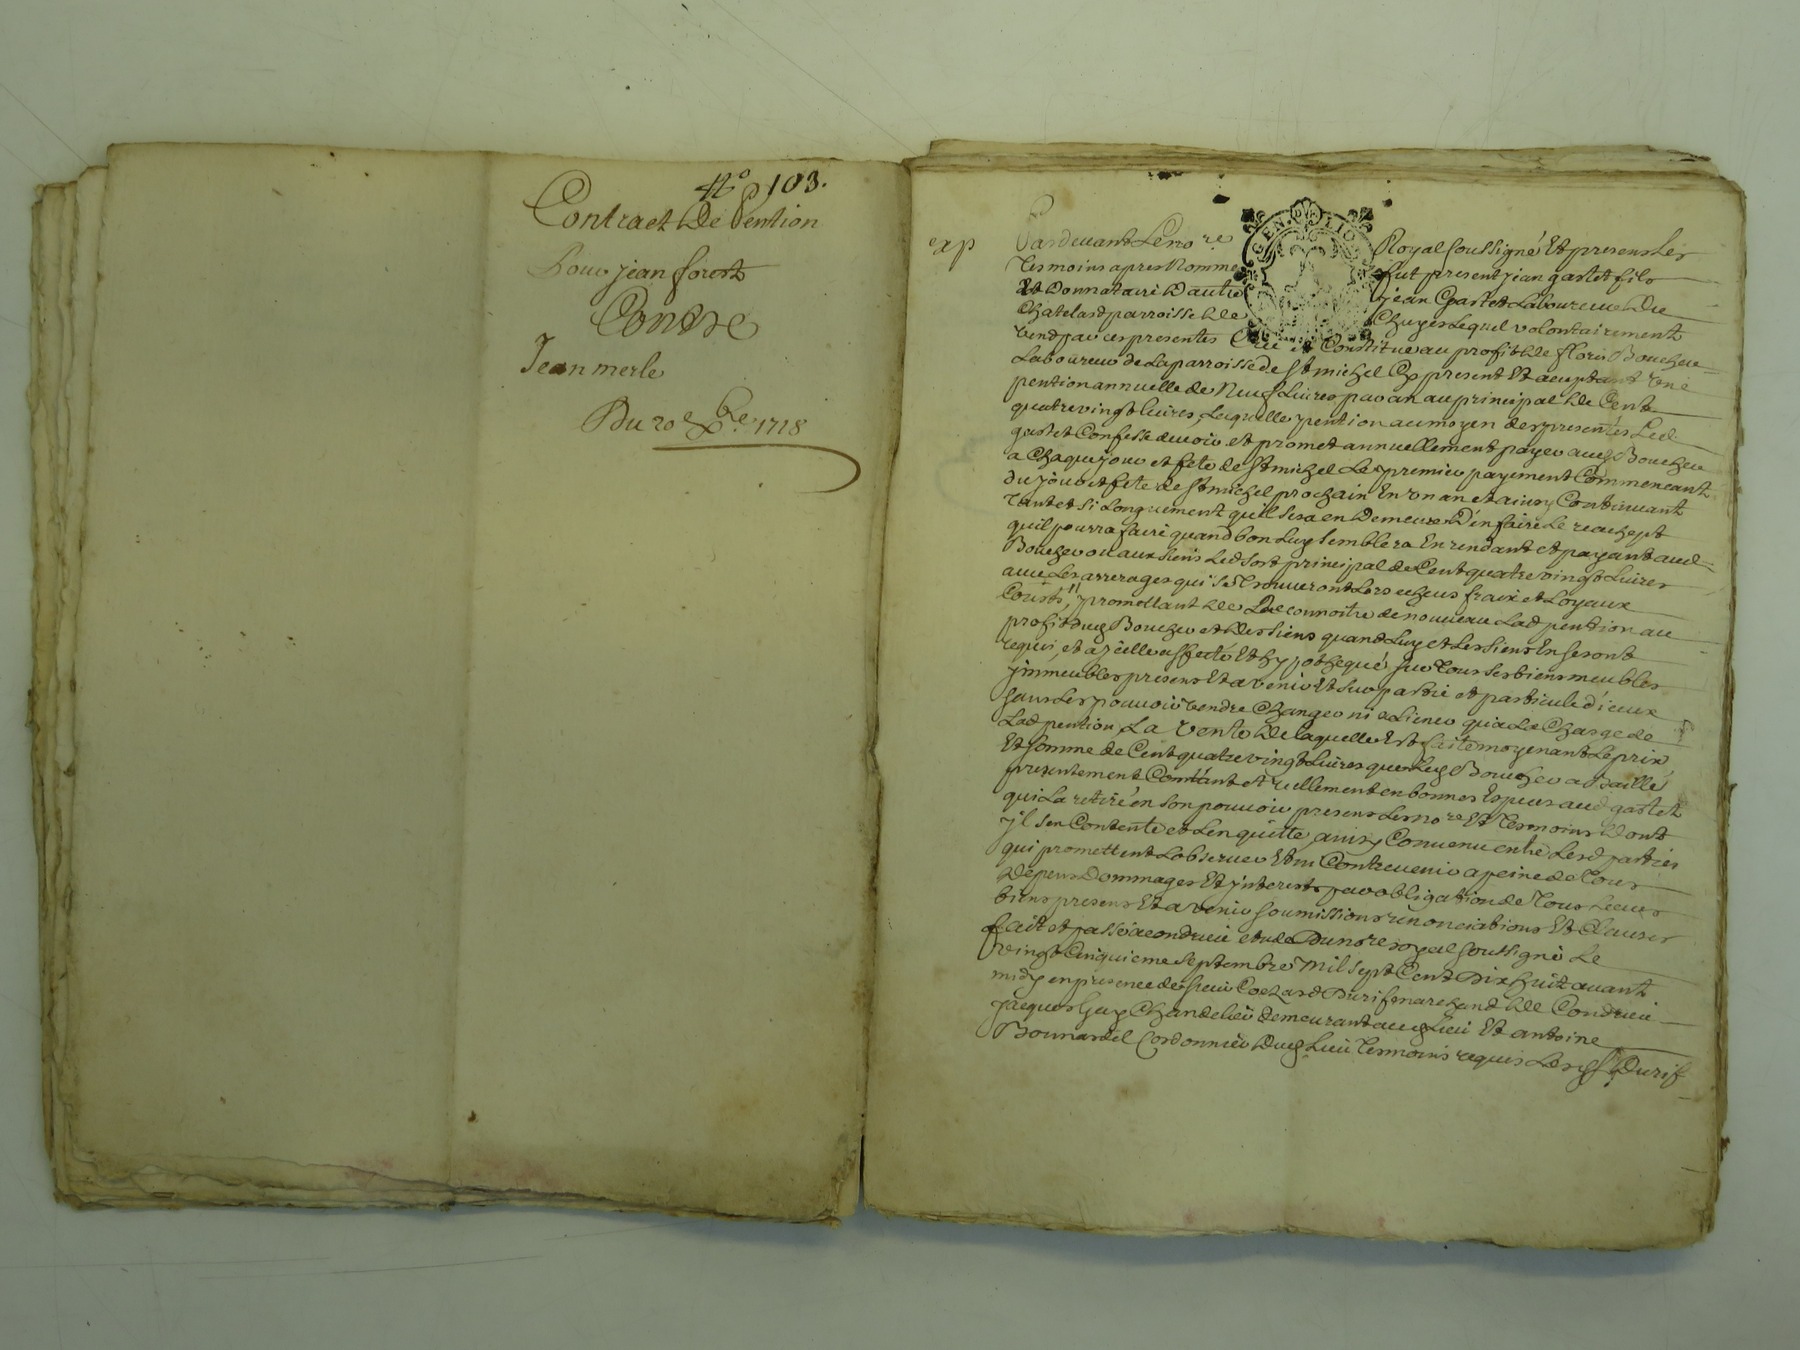 N.o 103.
Contract De Pention
Pour jean forest
Contre
Jean merle
Du 20e Xbre 1718
exp
Pardevant Le nore Royal soussigné Et presens Les
Tesmoins apres Nommes fut present jean gastet fils
Et Donnataire D'autre jean Gastet Laboureur Du
Chatelard parroisse De Chuyes Lequel volontairement
vend par ces presentes Crée et Constitue au profit De
Laboureur de La parroisse de St michel Cy present Et aceuptant Une
pention annuelle de Neuf Livres par an au principal De Cent
quatre vingt livres, Laquelle pention au moyen des presentes Led
gastet Confesse devoir et promet annuellement payer aud Boucher
a Chaque jour et fete de St michel Le premier payement Commencant
du jour et fete de St michel prochain En un an et ainsy Continuant
Tant et Si Longuement quil sera en Demeure D'en faire Le reachept
quil pourra faire quand bon Luy semblera En rendant et payant aud
Boucher ou aux siens Led sort principal de Cent quatre vingt Livres
avec Les arrerages qui se Trouveront Lors echeus fraix et Loyaux
Cousts, promettant De Reconnoitre de nouveau Lad pention au
profit dud Boucher et Des siens quand Luy et Les siens En seront
requis, et a icelle affecté Et hypothequé sur Tous ses biens meubles
jmmeubles presens Et avenir Et sur partie et particule d'iceux
sans Les pouvoir vendre Changer ni aliener qua La Charge de
Lad pention La Vente De laquelle Est faite moyenant Le prix
Et somme de Cent quatre vingt Livres que Led Boucher a Baillé
presentement Comtant et reellement en bonnes Especes aud gastet
qui La retiré en son pouvoir presens Les nore Et Tesmoins Dont
jl sen Contente et Len quitte ainsy Convenu entre Lesd parties
qui promettent Lobserver Et ni Contrevenir a peine de Tous
Depens Dommages Et jnterests par obligation de Tous Leurs
biens presens Et avenir soumissions renonciations Et Clauses
fait et passé a condrieu etude Du nore royal soussigné Le
vingt Cinquieme septembre Mil sept Cent Dix huit avant
midy en presence de sieur Durif marchand De Condrieu
jacques Guy Chandelier demeurant aud Lieu Et antoine
Bonnardel Cordonnier Dud Lieu Tesmoins requis Led sr Durif